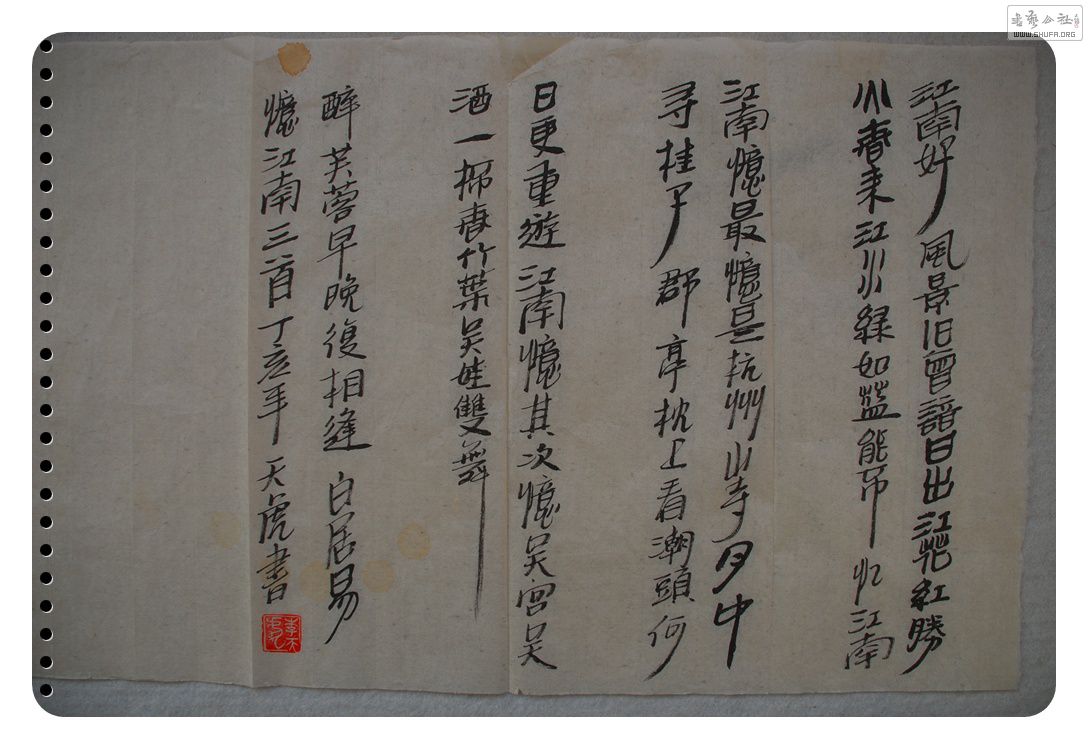 江南好風景旧曾諳日出江花紅勝
火春来江水緑如蓝能不忆江南
江南憶最憶是杭州山寺月中
寻桂子郡亭枕上看潮頭何
日更重遊江南憶其次憶吴宫吴
酒一杯春竹葉吴娃雙舞
醉芙蓉早晚復相逢白居易
憶江南三首丁亥年天虎書
李天
書藝公社
WWW.SHUFA.ORG